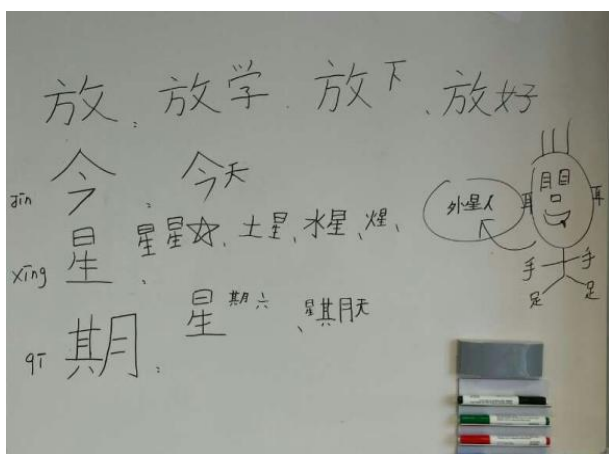 放、放学、放下、放好
jīn 今、今天
xīng 星、星星☆、土星、水星、煋、
qī 期、星期六、星期天
外星人
目目
耳 口 耳
手 手
足 足